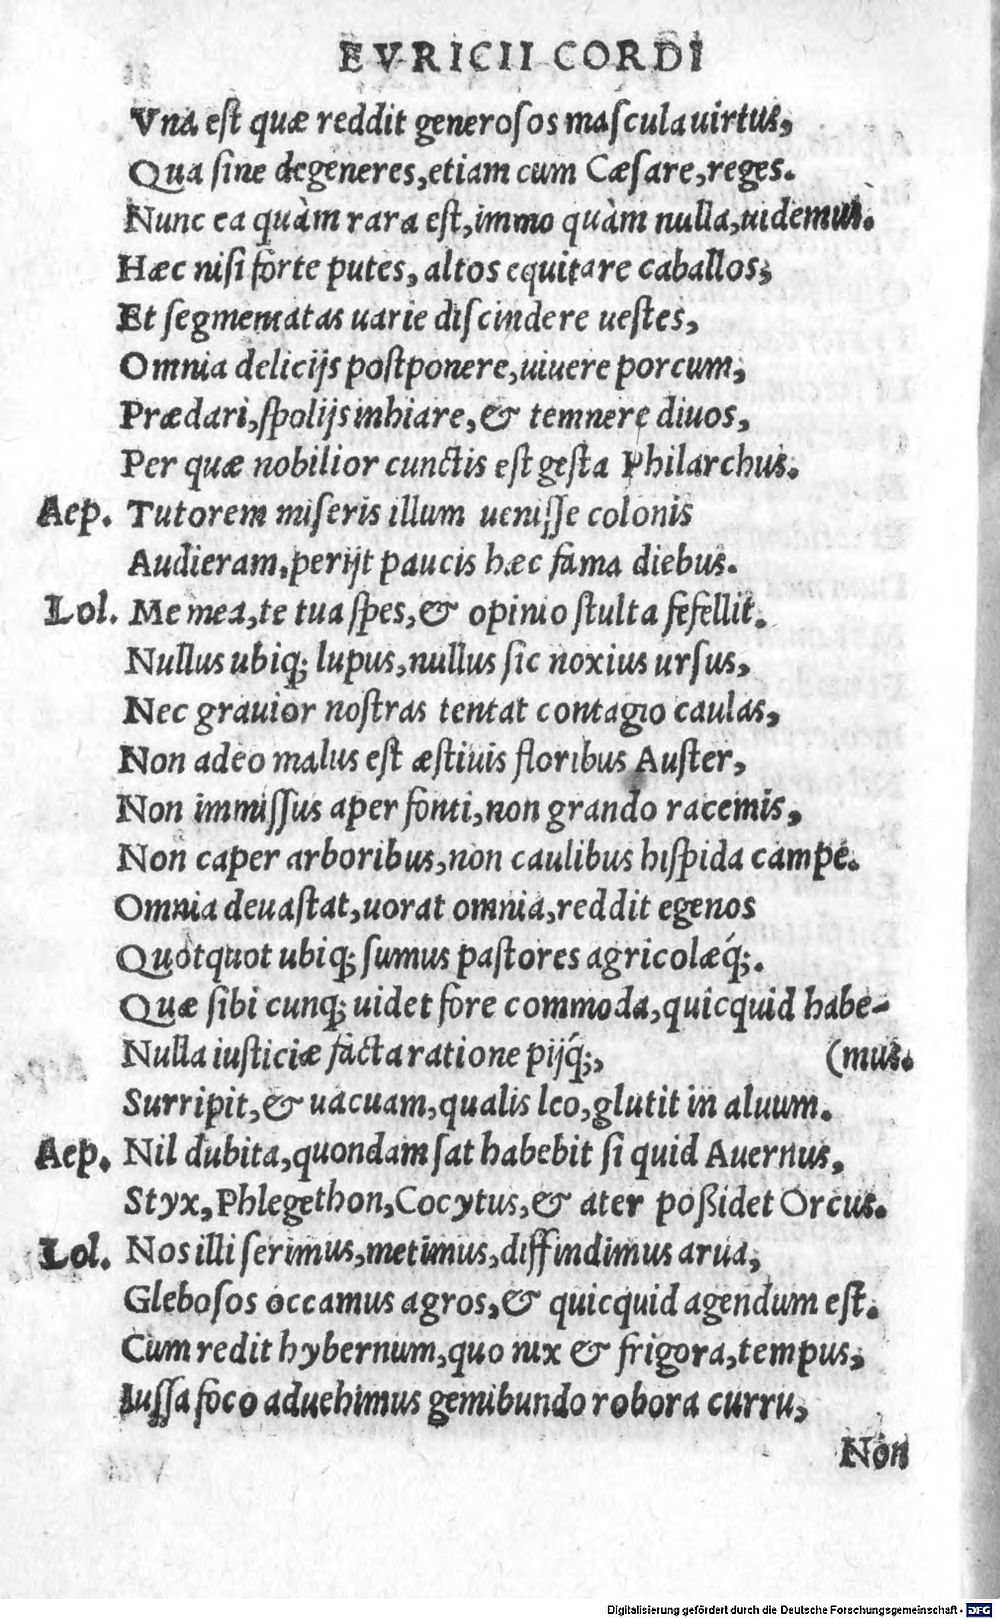 EVRICII CORDI
Vna est quæ reddit generosos mascula uirtus,
Qua sine degeneres, etiam cum Cæsare, reges.
Nunc ea quàm rara est, immo quàm nulla, uidemus.
Hæc nisi forte putes, altos equitare caballos,
Et segmentatas uarie discindere uestes,
Omnia delicijs postponere, uiuere porcum,
Prædari, spolijs inhiare, & temnere diuos,
Per quæ nobilior cunctis est gesta Philarchus.
Aep. Tutorem miseris illum uenisse colonis
Audieram, perijt paucis hæc fama diebus.
Lol. Me mea, te tua spes, & opinio stulta fefellit.
Nullus ubiq; lupus, nullus sic noxius ursus,
Nec grauior nostras tentat contagio caulas,
Non adeo malus est æstiuis floribus Auster,
Non immissus aper fonti, non grando racemis,
Non caper arboribus, non caulibus hispida campe.
Omnia deuastat, uorat omnia, reddit egenos
Quotquot ubiq; sumus pastores agricolæq́;.
Quæ sibi cunq; uidet fore commoda, quicquid habe-
Nulla iusticiæ facta ratione pijq́;, (mus.
Surripit, & uacuam, qualis leo, glutit in aluum.
Aep. Nil dubita, quondam sat habebit si quid Auernus,
Styx, Phlegethon, Cocytus, & ater poßidet Orcus.
Lol. Nos illi serimus, metimus, diffindimus arua,
Glebosos occamus agros, & quicquid agendum est.
Cum redit hybernum, quo nix & frigora, tempus,
Iussa foco aduehimus gemibundo robora curru,
Non
Digitalisierung gefördert durch die Deutsche Forschungsgemeinschaft - DFG